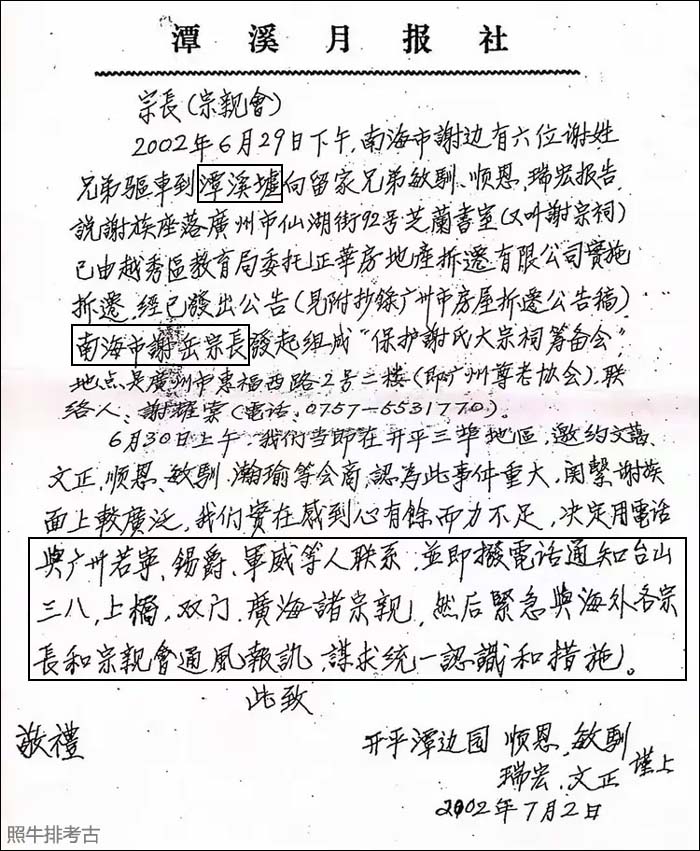 潭溪月报社
宗長(宗親會)
2002年6月29日下午,南海市謝边有六位谢姓
兄弟驅車到潭溪墟向留家兄弟敏馴、順恩、瑞宏报告,
説謝族座落廣州市仙湖街92号芝蘭書室(又叫謝宗祠)
已由越秀區教育局委托正華房地產拆遷有限公司實施
拆遷,經已發出公告(見附抄錄广州市房屋拆遷公告稿)
南海市謝岳宗長發起组成"保护謝氏大宗祠筹备会",
地点是廣州市惠福西路2号二楼(即广州尊老协会),联
络人、謝耀棠(電话、0757-5531770)。
6月30日上午,我们当即在开平三埠地區,邀约文藹、
文正、順恩、敏馴、瀚瑜等会商,認為此事件重大,関繫谢族
面上較廣泛,我们實在感到心有餘而力不足,决定用電话
與广州若寧、錫爵、軍威等人联系,並即撥電话通知台山
三八,上橋,双门,廣海諸宗親,然后緊急與海外各宗
長和宗親會通風報訊,謀求统一認識和措施。
此致
敬禮
开平潭边园 順恩、敏馴
瑞宏、文正 謹上
2002年7月2日
照牛排考古